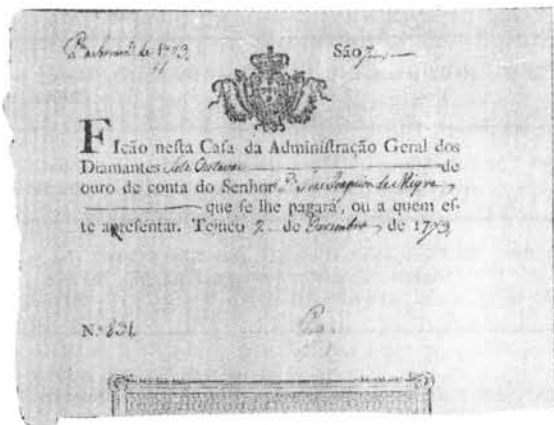 de 1773 São 7
FIcão neſta Caſa da Adminiſtração Geral dos
Diamantes Sete Outavas de
ouro de conta do Senhor Joze Joaquim de
que ſe lhe pagará, ou a quem eſ-
te apreſentar. Tejuco 2 de Dezembro, de 1773
N.º 831